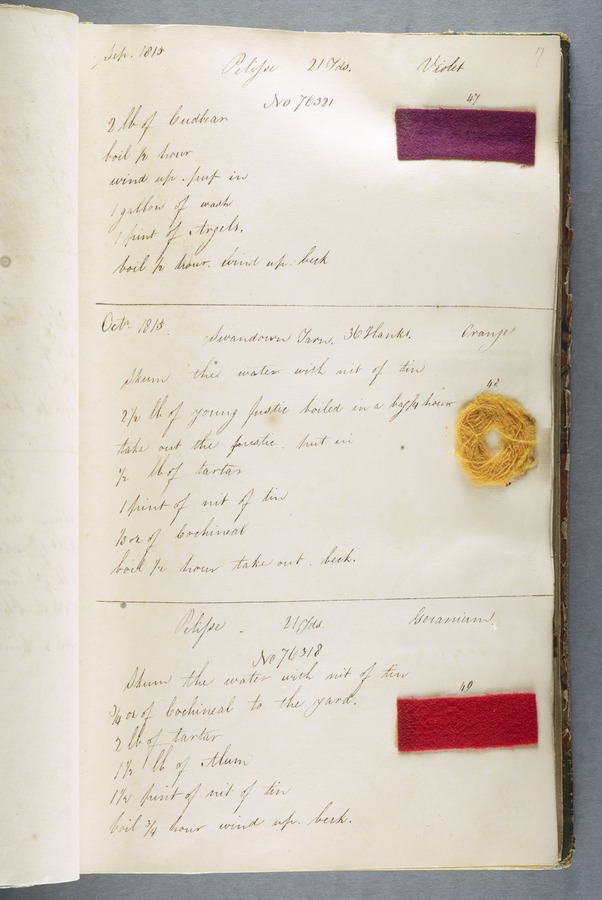 Sep. 1815
17
Pelisse 21 Yds. Violet
No 76321
47
2 lb of Cudbear
boil ½ hour
wind up. put in
1 gallon of wash
1 pint of Argels.
boil ½ hour. wind up. beck
Octr 1815.
Swandown Yarn. 36 Hanks. Orange
Skum the water with nit of tin
48
2½ lb of young fustic boiled in a bag ¾ hour
take out the fustic. put in
½ lb of tartar
1 pint of nit of tin
oz of Cochineal
boil ½ hour take out. beck.
Pelisse - 21 Yds. Geranium.
No 76318
Skum the water with nit of tin
¾ oz of Cochineal to the yard.
49
2 lb of tartar
1½ lb of Alum
1½ pint of nit of tin
boil ¾ hour wind up. beck.